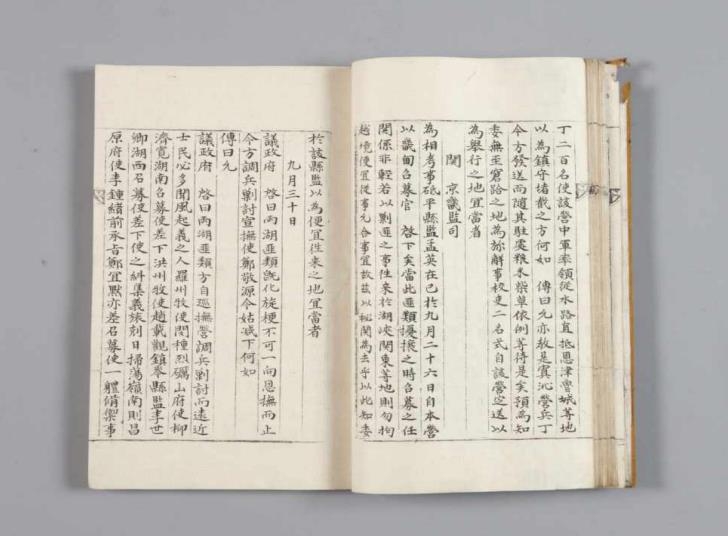 丁二百名使該營中軍率領從水路直抵恩津魯城等地
以為鎮守堵截之方何如　傳曰允亦敎是寘沁營兵丁
今方發送而隨其駐處粮米柴草依例等待是矣預為知
委無至窘跲之地為旀解事校吏二名式自該營定送以
為舉行之地宜當者
關　京畿監司
為相考事砥平縣監孟英在已於九月二十六日自本營
以畿甸召募官　啓下矣當此匪類擾攘之時召募之任
關係非輕若以剿匪之事徃来於湖峽關東等地則勿拘
越境便宜從事允合事宜故玆以秘關為去乎以此知委
於該縣監以為便宜徃来之地宜當者
九月三十日
議政府　啓曰兩湖匪類旣化旋梗不可一向恩撫而止
今方調兵剿討宣撫使鄭敬源令姑减下何如
傳曰允
議政府　啓曰兩湖匪類方自巡撫營調兵剿討而遠近
士民必多聞風起義之人羅州牧使閔種烈礪山府使柳
濟寬湖南召募使差下洪州牧使趙載觀鎮岑縣監李世
卿湖西召募使差下使之糾集義旅刻日掃蕩嶺南則昌
原府使李鍾緖前承旨鄭宜默亦差召募使一軆備禦事